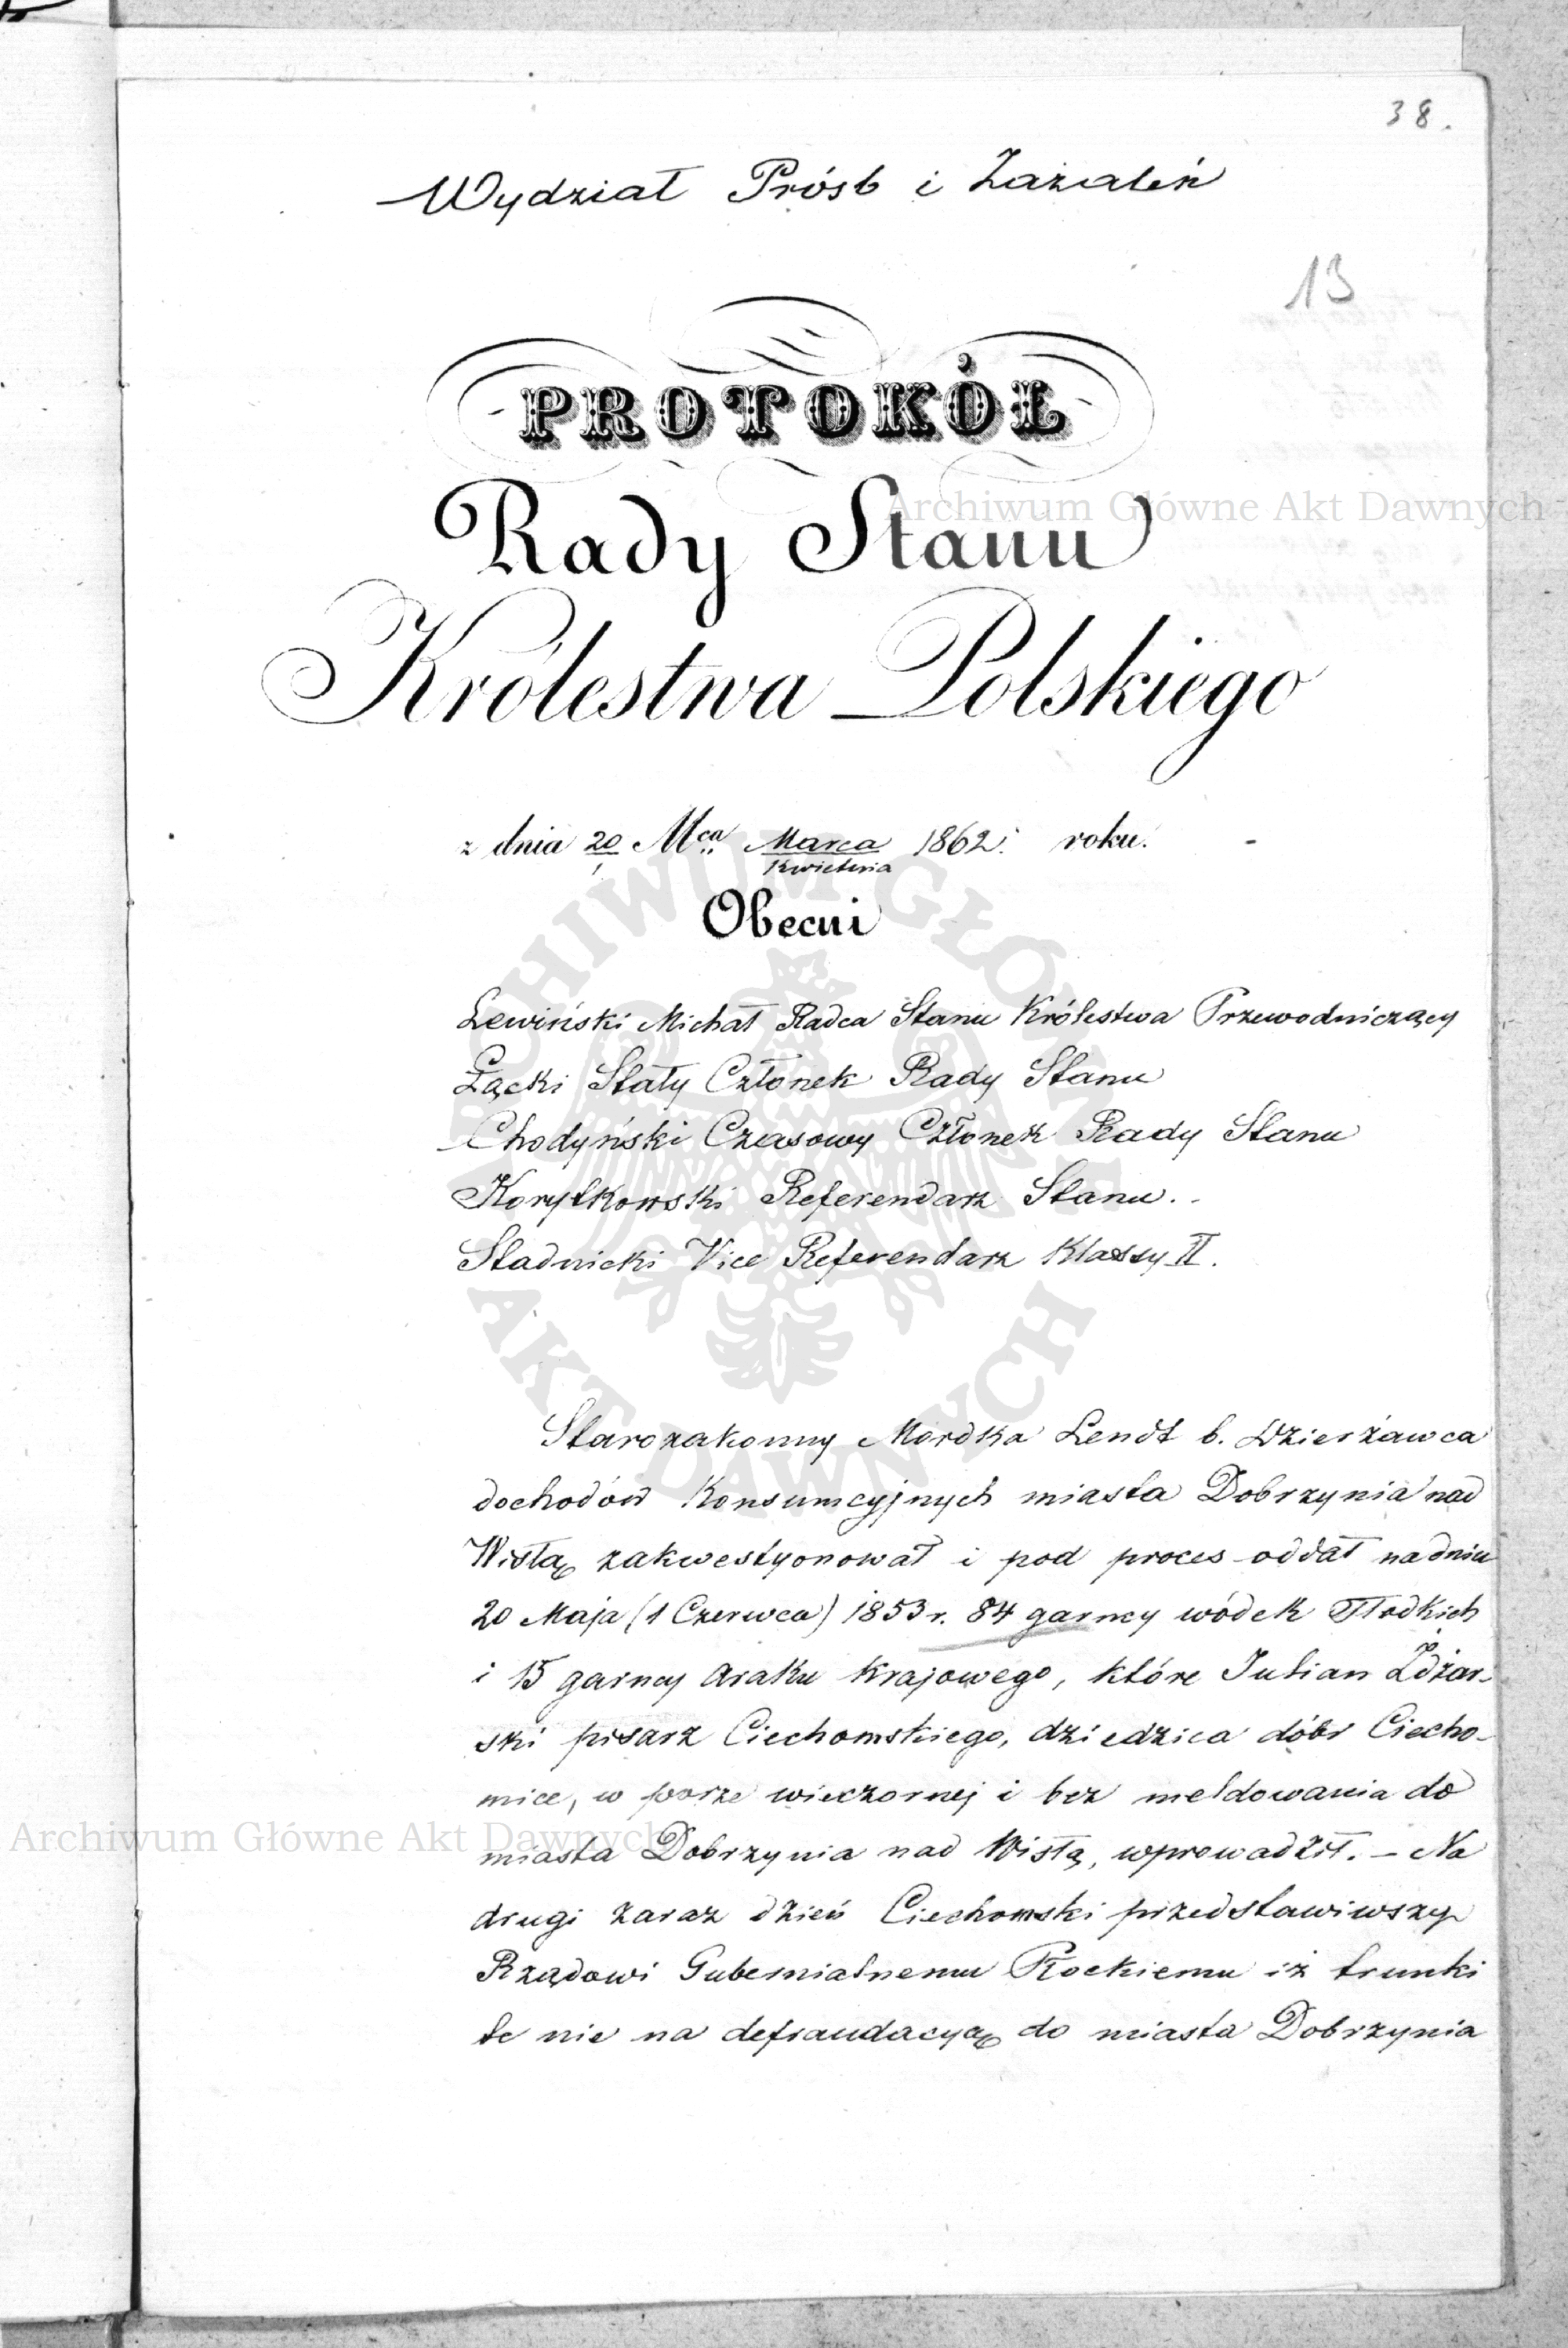 38.
Wydział Próśb i Zażaleń
13
PROTOKÓŁ
Rady Stanu
Królestwa Polskiego
z dnia 20/1 Mca Marca/Kwietnia 1862. roku.
Obecni
Lewiński Michał Radca Stanu Królestwa Przewodniczący
Łącki Stały Członek Rady Stanu
Chodyński Czasowy Członek Rady Stanu
Korytkowski Referendarz Stanu.
Stadnicki Vice Referendarz Klassy II.
Starozakonny Mordka Lendt b. Dzierżawca
dochodów Konsumcyjnych miasta Dobrzynia nad
Wisłą zakwestyonował i pod proces oddał na dniu
20 Maja (1 Czerwca) 1853 r. 84 garncy wódek słodkich
i 15 garncy Araku Krajowego, które Julian Zdżar-
ski pisarz Ciechomskiego, dziedzica dóbr Ciecho-
mice, w porze wieczornej i bez meldowania do
miasta Dobrzynia nad Wisłą, wprowadził. – Na
drugi zaraz dzień Ciechomski przedstawiwszy
Rządowi Gubernialnemu Płockiemu iż trunki
te nie na defraudacyą do miasta Dobrzynia
Archiwum Główne Akt Dawnych
ARCHIWUM GŁÓWNE AKT DAWNYCH
Archiwum Główne Akt Dawnych